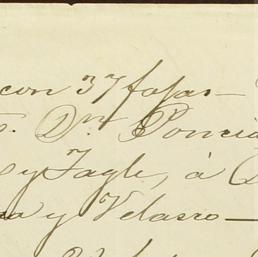 con 37 fojas—
Dn Poncia
y Tagle, à
a y Velasco—